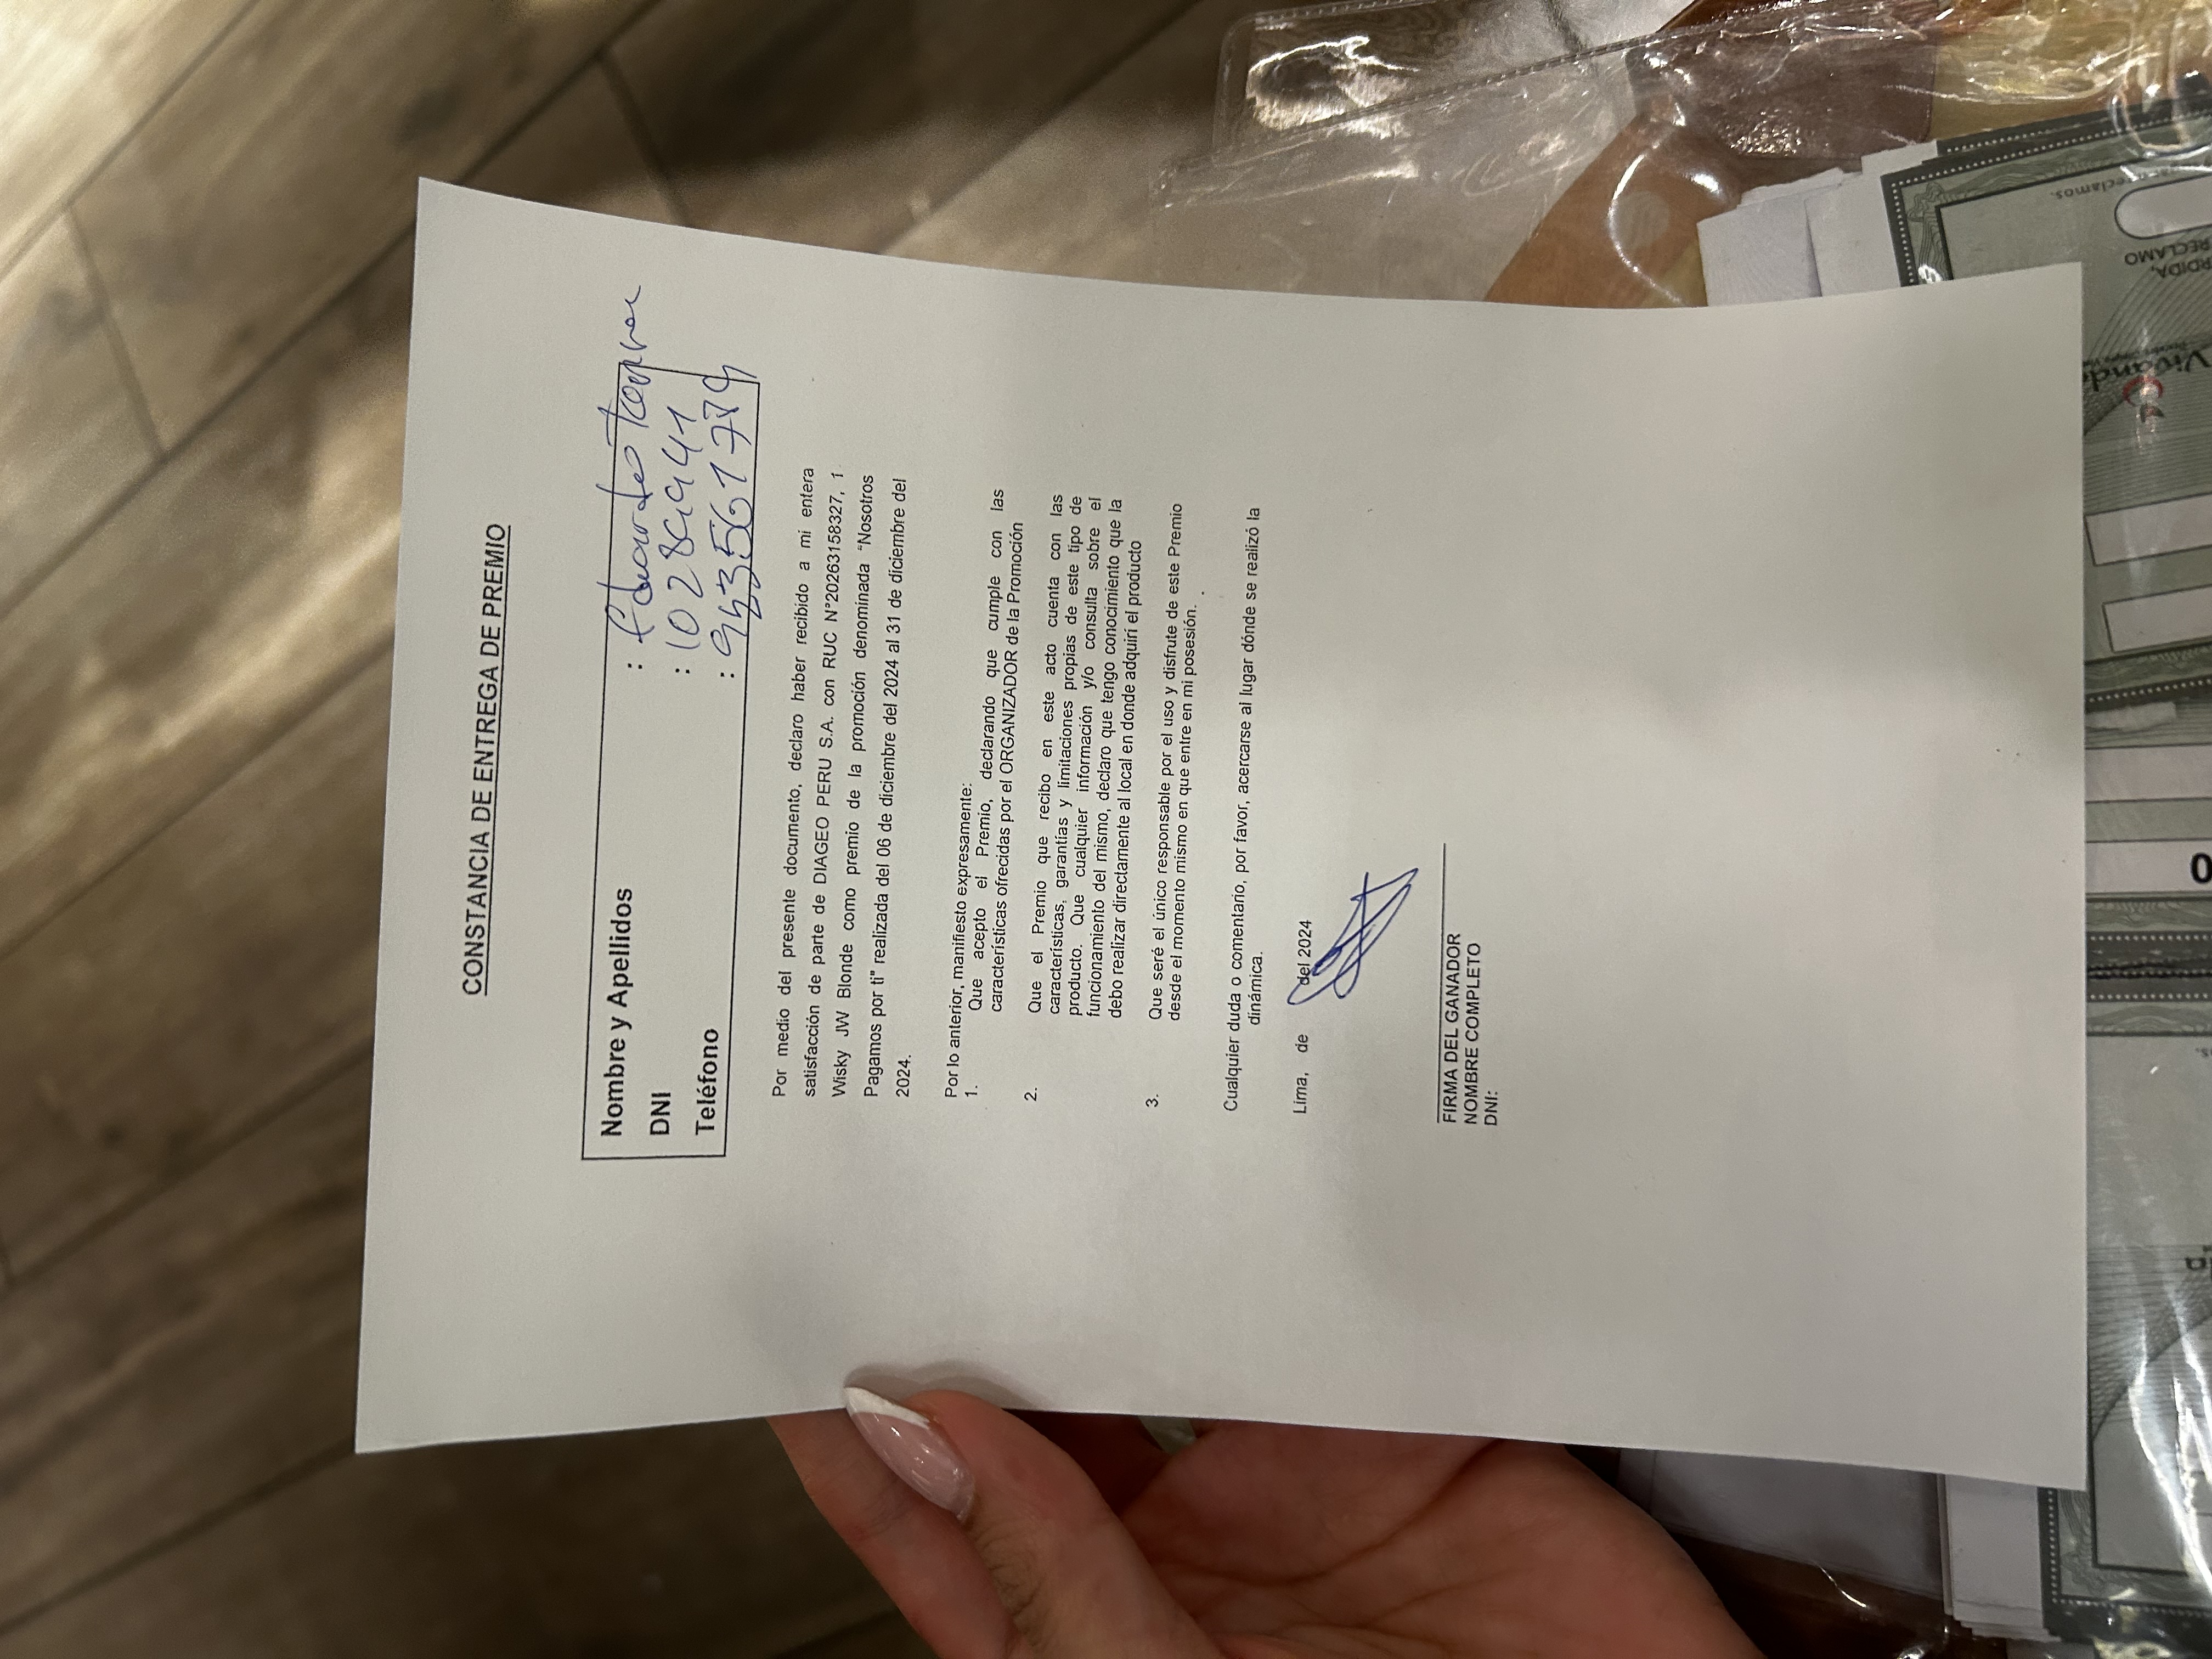 CONSTANCIA DE ENTREGA DE PREMIO
Nombre y Apellidos : Eduardo
DNI : 10289941
Teléfono : 953561779
Por medio del presente documento, declaro haber recibido a mi entera
satisfacción de parte de DIAGEO PERU S.A. con RUC N°20263158327, 1
Wisky JW Blonde como premio de la promoción denominada “Nosotros
Pagamos por ti" realizada del 06 de diciembre del 2024 al 31 de diciembre del
2024.
Por lo anterior, manifiesto expresamente:
1. Que acepto el Premio, declarando que cumple con las
características ofrecidas por el ORGANIZADOR de la Promoción
2. Que el Premio que recibo en este acto cuenta con las
características, garantías y limitaciones propias de este tipo de
producto. Que cualquier información y/o consulta sobre el
funcionamiento del mismo, declaro que tengo conocimiento que la
debo realizar directamente al local en donde adquirí el producto
3. Que seré el único responsable por el uso y disfrute de este Premio
desde el momento mismo en que entre en mi posesión.
Cualquier duda o comentario, por favor, acercarse al lugar dónde se realizó la
dinámica.
Lima, de del 2024
FIRMA DEL GANADOR
NOMBRE COMPLETO
DNI:
RECLAMO